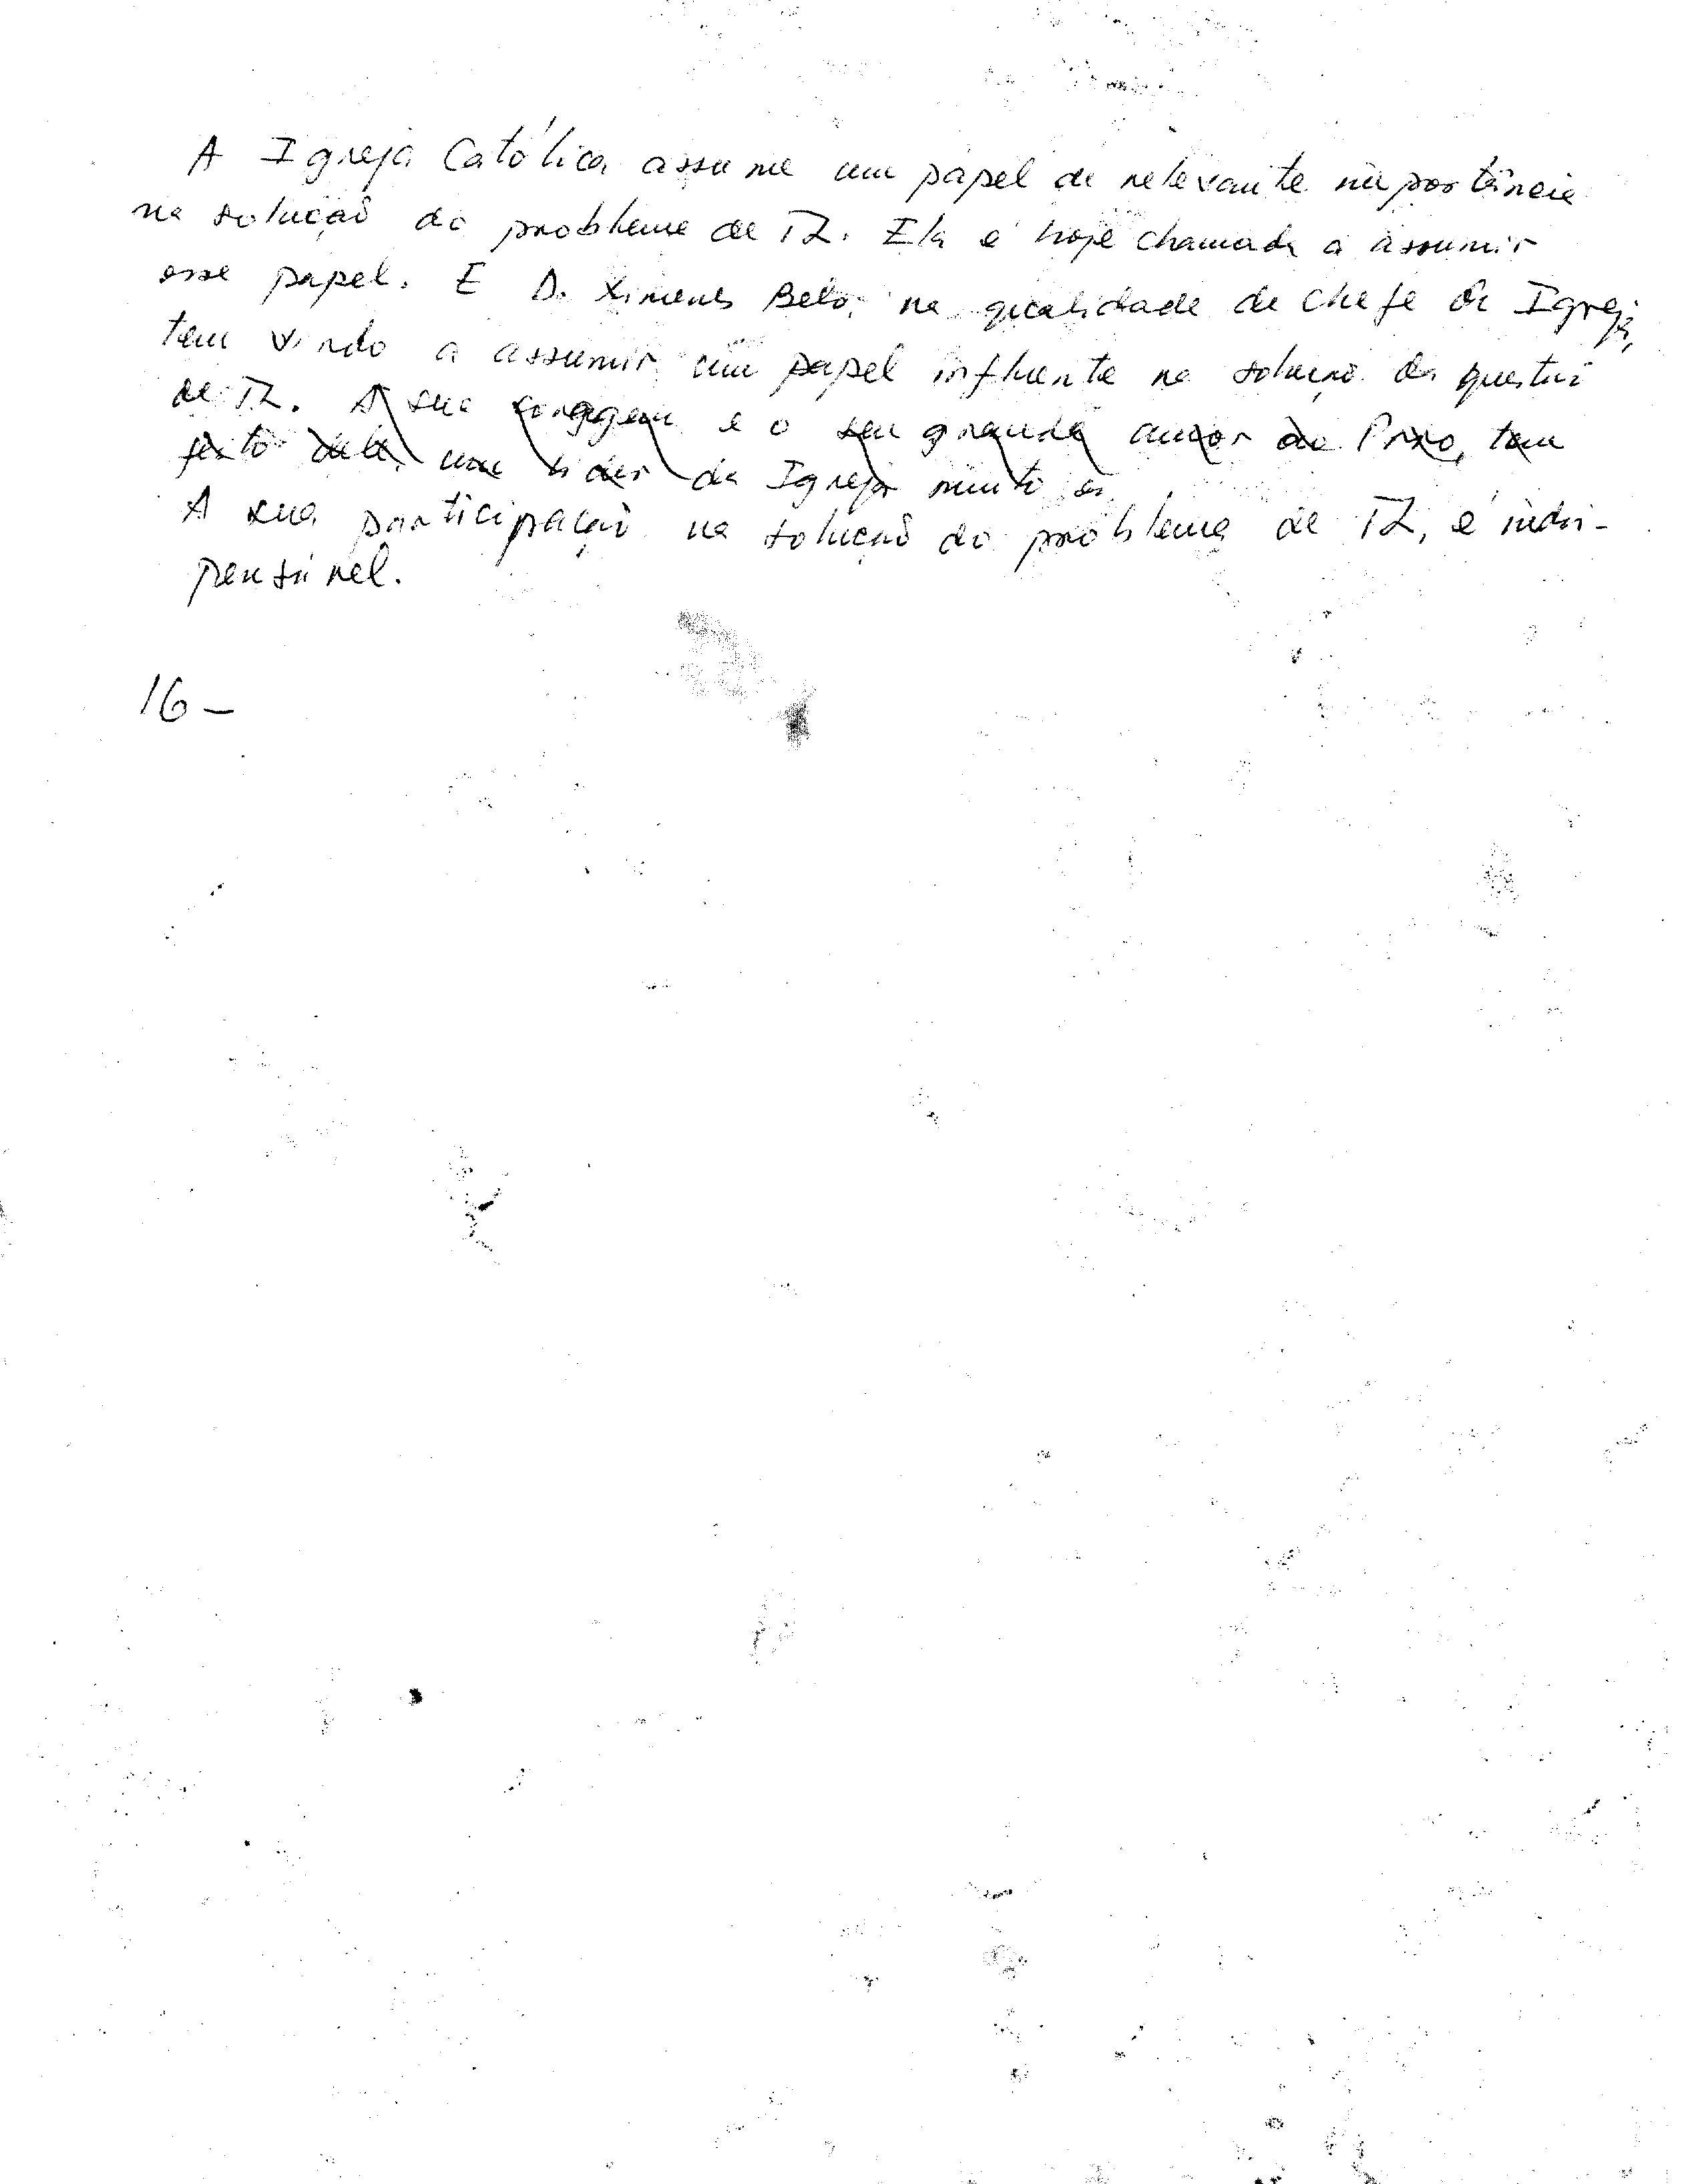 A Igreja Católica assume um papel de relevante importância
na solução do problema de TL. Ela é hoje chamada a assumir
esse papel. E D. Ximenes Belo, na qualidade de chefe da Igreja,
tem vindo a assumir um papel influente na solução da questão
de TL. A sua coragem e o seu grande amor ao Povo, tem
feito dele, um líder da Igreja muito
A sua participação na solução do problema de TL, é indis-
pensável.
16 –